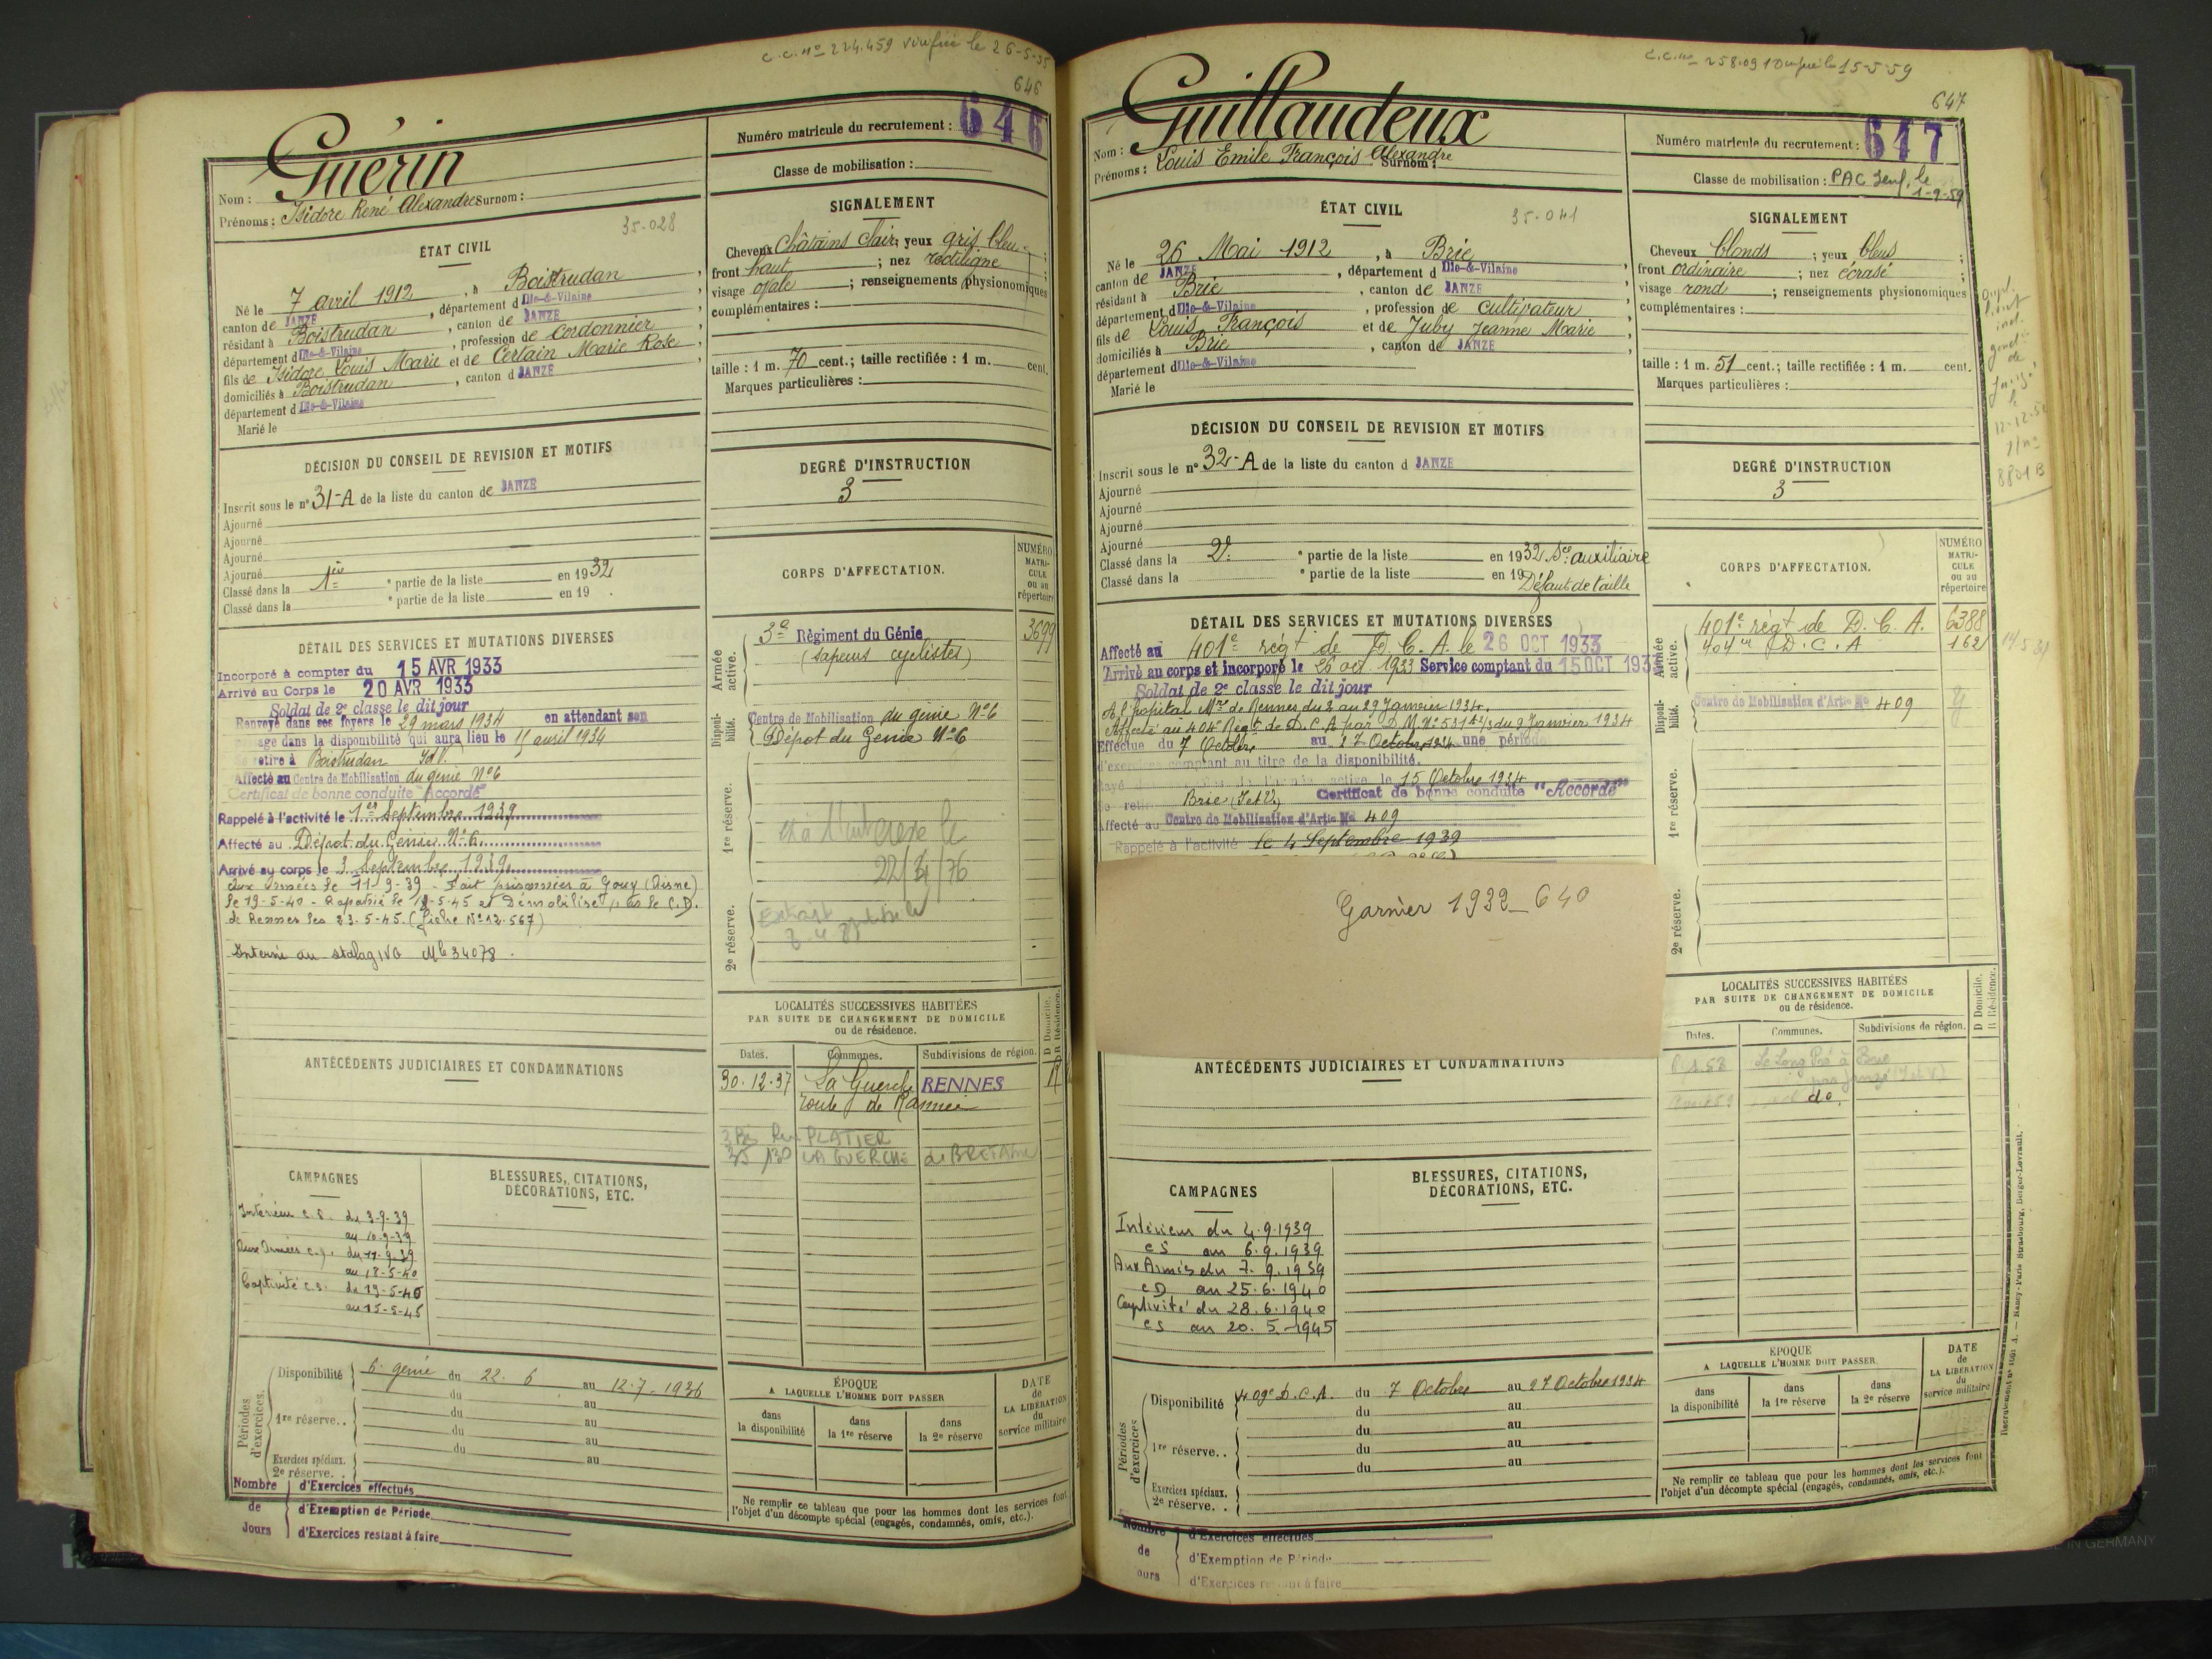 C.C. n° 224.459 vérifiée le 26-5-55
646
Guérin
Nom :
Prénoms : Isidore René Alexandre Surnom :
35-028
ÉTAT CIVIL
Né le 7 avril 1912, à Boistrudan,
canton de JANZÉ, département d Ille-&-Vilaine
résidant à Boistrudan, canton de JANZÉ,
département d Ille-&-Vilaine, profession de Cordonnier,
fils de Isidore Louis Marie et de Certain Marie Rose,
domiciliés à Boistrudan, canton d JANZÉ
département d Ille-&-Vilaine
Marié le
DÉCISION DU CONSEIL DE REVISION ET MOTIFS
Inscrit sous le n° 31-A de la liste du canton de JANZÉ
Ajourné
Ajourné
Ajourné
Ajourné
Classé dans la 1ère partie de la liste en 1932
Classé dans la ° partie de la liste en 19 .
DÉTAIL DES SERVICES ET MUTATIONS DIVERSES
Incorporé à compter du 15 AVR 1933
Arrivé au Corps le 20 AVR 1933
Soldat de 2e classe le dit jour
Renvoyé dans ses foyers le 29 mars 1934 en attendant son
passage dans la disponibilité qui aura lieu le 15 avril 1934
Se retire à Boistrudan
Affecté au Centre de Mobilisation du génie N°6
Certificat de bonne conduite "Accordé"
Rappelé à l'activité le 1er Septembre 1939
Affecté au Dépôt du Génie N°6
Arrivé au corps le 3 Septembre 1939
Aux armées le 11-9-39 - Fait prisonnier à Gouy (Aisne)
le 19-5-40 - Rapatrié le 18-5-45 et Démobilisé par le C.D.
de Rennes les 23-5-45. (fiche N°12.567)
Interné au stalag IVG Mle 34078.
ANTÉCÉDENTS JUDICIAIRES ET CONDAMNATIONS
CAMPAGNES
Intérieur c.s. du 3-9-39
au 10-9-39
Aux Armées c.s. du 11-9-39
au 18-5-40
Captivité c.s. du 19-5-40
au 15-5-45
BLESSURES, CITATIONS,
DÉCORATIONS, ETC.
Périodes d'exercices.
Disponibilité 6e génie du 22. 6 au 12-7-1936
du au
1re réserve.. du au
du au
Exercices spéciaux. du au
2e réserve. .
Nombre de Jours
d'Exercices effectués
d'Exemption de Période
d'Exercices restant à faire
Numéro matricule du recrutement : 646
Classe de mobilisation :
SIGNALEMENT
Cheveux Châtains clair; yeux gris bleu;
front haut; nez rectiligne;
visage ovale; renseignements physionomiques
complémentaires :
taille : 1 m. 70 cent.; taille rectifiée : 1 m. cent.
Marques particulières :
DEGRÉ D'INSTRUCTION
3
CORPS D'AFFECTATION.
NUMÉRO MATRICULE ou au répertoire
Armée active.
3e Régiment du Génie 3699
(sapeurs cyclistes)
Disponibilité.
Centre de Mobilisation du génie N°6
Dépôt du Génie N°6
1re réserve.
22/4/76
2e réserve.
Extrait
LOCALITÉS SUCCESSIVES HABITÉES
PAR SUITE DE CHANGEMENT DE DOMICILE
ou de résidence.
D Domicile. R Résidence.
Dates. Communes. Subdivisions de région.
30.12.37 La Guerche RENNES R
route de Rannée
3 Bis Rue PLATIER
35 130 LA GUERCHE de BRETAGNE
ÉPOQUE
A LAQUELLE L'HOMME DOIT PASSER
dans la disponibilité
dans la 1re réserve
dans la 2e réserve
DATE de LA LIBÉRATION du service militaire
Ne remplir ce tableau que pour les hommes dont les services font
l'objet d'un décompte spécial (engagés, condamnés, omis, etc.).
C.C. n° 258.091 le 15-5-59
647
Guillaudeux
Nom :
Prénoms : Louis Emile François Alexandre
Surnom :
35-041
ÉTAT CIVIL
Né le 26 Mai 1912, à Brie
canton de JANZÉ, département d Ille-&-Vilaine,
résidant à Brie, canton de JANZÉ
département d Ille-&-Vilaine, profession de Cultivateur,
fils de Louis François et de Juby Jeanne Marie,
domiciliés à Brie, canton de JANZÉ,
département d Ille-&-Vilaine
Marié le
DÉCISION DU CONSEIL DE REVISION ET MOTIFS
Inscrit sous le n° 32-A de la liste du canton d JANZÉ
Ajourné
Ajourné
Ajourné
Ajourné
Classé dans la 2e ° partie de la liste en 1932 Sce auxiliaire
Classé dans la ° partie de la liste en 19 Défaut de taille
DÉTAIL DES SERVICES ET MUTATIONS DIVERSES
Affecté au 401e régt de D.C.A. le 26 OCT 1933
Arrivé au corps et incorporé le 26 oct 1933 Service comptant du 15 OCT 1933
Soldat de 2e classe le dit jour
A l'hôpital Mre de Rennes du 2 au 29 Janvier 1934.
Affecté au 404e Régt de D.C.A par D.M. N° 531 du 9 Janvier 1934
Effectue du 7 Octobre au 27 Octobre 1934 une période
d'exercices comptant au titre de la disponibilité.
active le 15 Octobre 1934
Se retire Brie (I et V) Certificat de bonne conduite "Accordé"
Affecté au Centre de Mobilisation d'Artie No 409
Rappelé à l'activité le 4 Septembre 1939
Garnier 1932_640
ANTÉCÉDENTS JUDICIAIRES ET CONDAMNATIONS
CAMPAGNES
Intérieur du 4.9.1939
CS au 6.9.1939
Aux Armées du 7.9.1939
CD au 25.6.1940
Captivité du 28.6.1940
CS au 20.5.1945
BLESSURES, CITATIONS,
DÉCORATIONS, ETC.
Périodes d'exercices
Disponibilité 409e D.C.A. du 7 Octobre au 27 Octobre 1934
du au
du au
1re réserve.. du au
du au
Exercices spéciaux.
2e réserve. .
Nombre de Jours
d'Exercices effectués
d'Exemption de Période
d'Exercices restant à faire
Numéro matricule du recrutement : 647
Classe de mobilisation : PAC le
1-9-59
SIGNALEMENT
Cheveux blonds; yeux bleus;
front ordinaire; nez écrasé;
visage rond; renseignements physionomiques
complémentaires :
taille : 1 m. 51 cent.; taille rectifiée : 1 m. cent.
Marques particulières :
8801 B
DEGRÉ D'INSTRUCTION
3
CORPS D'AFFECTATION.
NUMÉRO MATRICULE ou au répertoire
Armée active.
401e régt de D.C.A. 6388
404e D.C.A 162
Disponibilité.
Centre de Mobilisation d'Artie No 409
1re réserve.
2e réserve.
LOCALITÉS SUCCESSIVES HABITÉES
PAR SUITE DE CHANGEMENT DE DOMICILE
ou de résidence.
D Domicile. R Résidence.
Dates. Communes. Subdivisions de région.
Le Long Pré à Brie
par Janzé (I et V)
do
ÉPOQUE
A LAQUELLE L'HOMME DOIT PASSER
dans la disponibilité
dans la 1re réserve
dans la 2e réserve
DATE de LA LIBÉRATION du service militaire
Ne remplir ce tableau que pour les hommes dont les services font
l'objet d'un décompte spécial (engagés, condamnés, omis, etc.).
Nancy-Paris Strasbourg, Berger-Levrault.
IN GERMANY